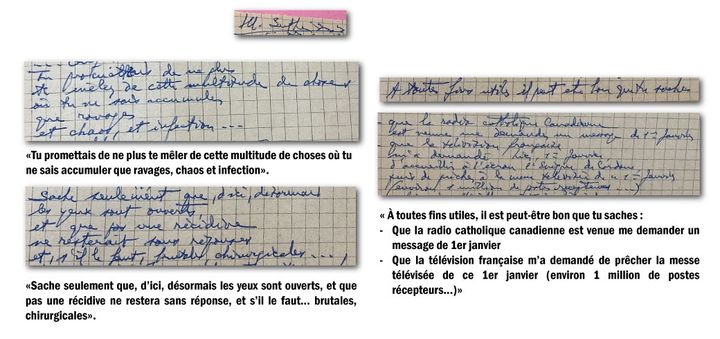 Tu promettais de ne plus
te mêler de cette multitude de choses
où tu ne sais accumuler
que ravages
et chaos, et infection....
«Tu promettais de ne plus te mêler de cette multitude de choses où tu
ne sais accumuler que ravages, chaos et infection».
Sache seulement que, d'ici, désormais
les yeux sont ouverts
et que pas une récidive
ne resterait sans réponse
et, s'il le faut, brutales, chirurgicales...,
«Sache seulement que, d'ici, désormais les yeux sont ouverts, et que
pas une récidive ne restera sans réponse, et s'il le faut... brutales,
chirurgicales».
A toutes fins utiles il peut être bon que tu saches
que la radio catholique Canadienne
est venue me demander un message de 1er Janvier
que la télévision française
m'a demandé, 1er Janvier
d'accueillir à l'écran
puis de prêcher à la messe télévisée de ce 1er Janvier
(environ 1 million de postes récepteurs...)
« À toutes fins utiles, il est peut-être bon que tu saches :
- Que la radio catholique canadienne est venue me demander un
message de 1er janvier
- Que la télévision française m'a demandé de prêcher la messe
télévisée de ce 1er janvier (environ 1 million de postes
récepteurs...)»